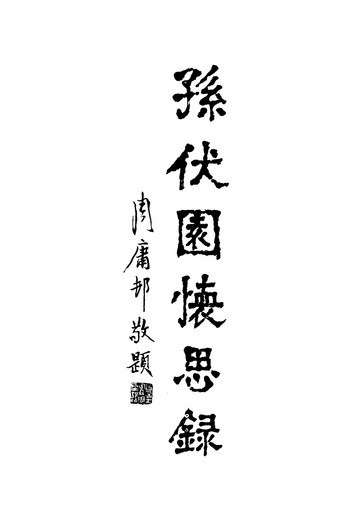 孫伏園懷思録
周庸邨敬題